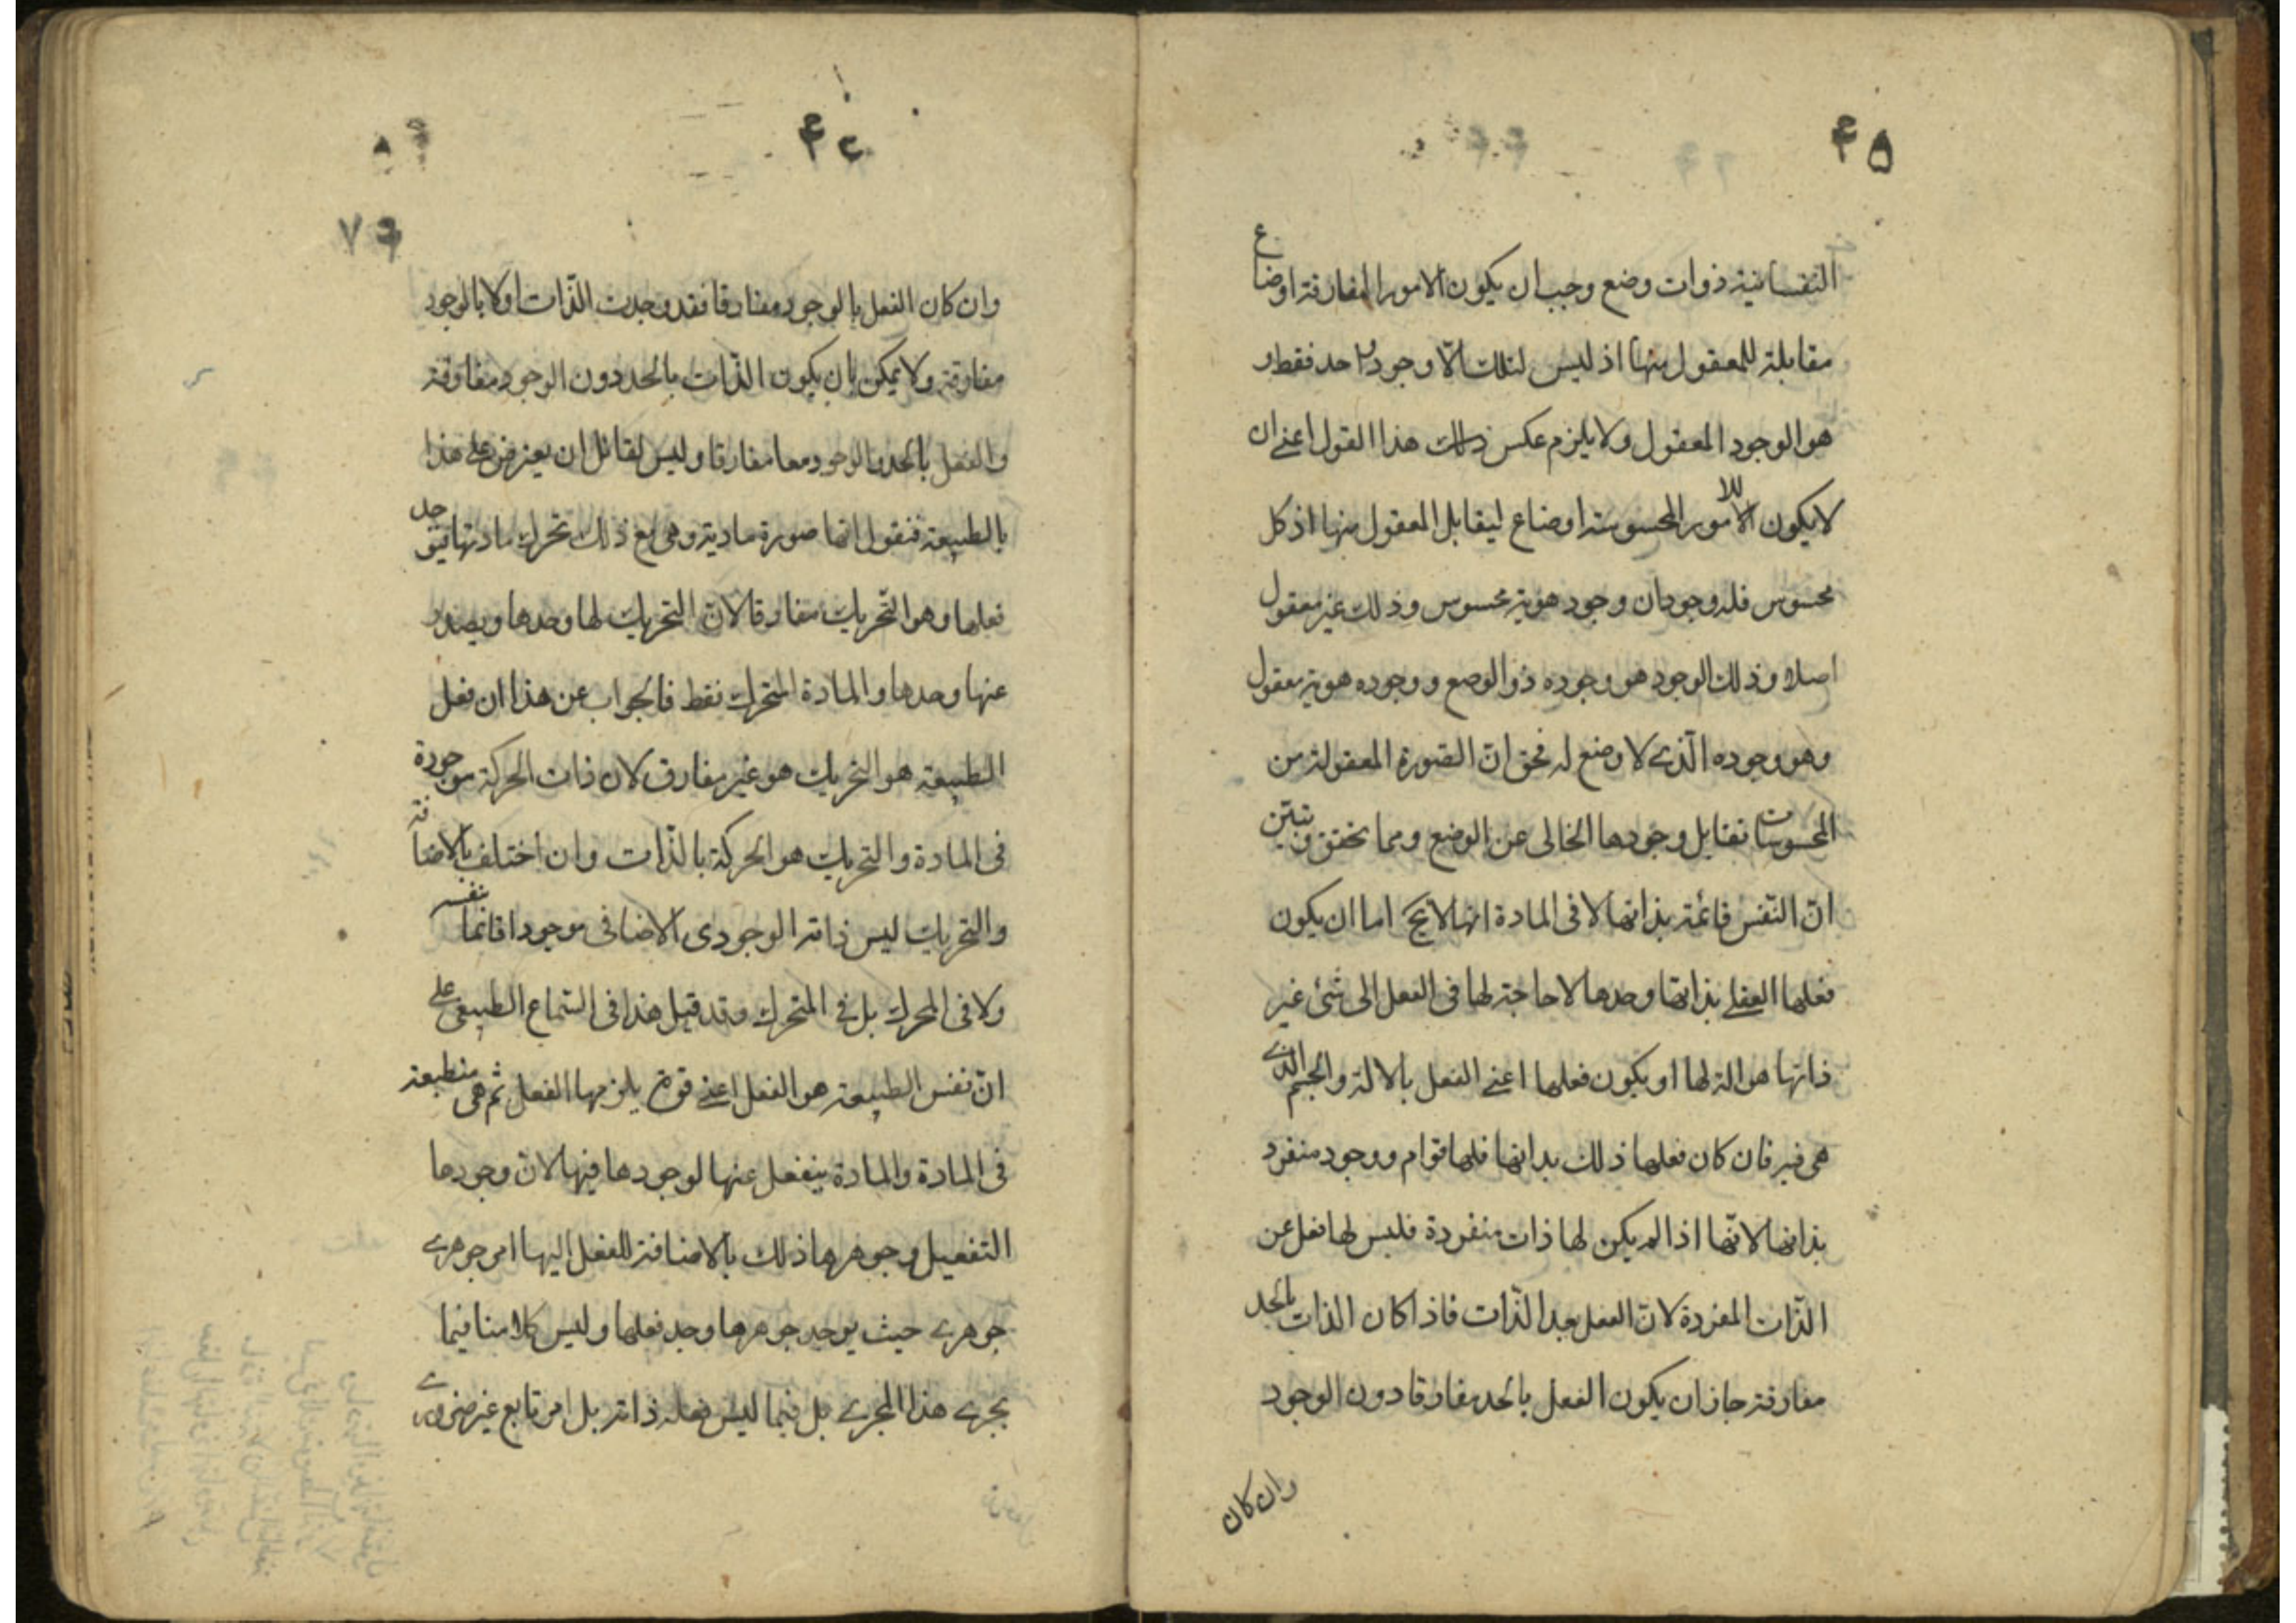 ۴۵
النفسانية ذوات وضع وجب ان يكون الامور المفارقة اوضاع
مقابلة للمعقول منها اذ ليس لتلك الا وجود واحد فقط و
هو الوجود المعقول ولا يلزم عكس ذلك هذا القول اعنے ان
لا يكون للامور المحسوسة اوضاع ليقابل المعقول منها اذ كل
محسوس فله وجودان وجود هوية محسوس وذلك غير معقول
اصلا وذلك الوجود هو وجوده ذو الوضع ووجوده هوية معقول
وهو وجوده الّذے لا وضع له فحق انّ الصّورة المعقولة من
المحسوسات تقابل وجودها الخالى عن الوضع ومما يحقق ويبيّن
انّ النّفس قائمة بذاتها لا فى المادة انها لا يخ اما ان يكون
فعلها العقلے بذاتها وحدها لا حاجة لها فى الفعل الى شئ غير
ذاتها هو الة لها او يكون فعلها اعنے الفعل بالالة والجسم الذے
هى فيه فان كان فعلها ذلك بذاتها فلها قوام ووجود منفرد
بذاتها لانّها اذا لم يكن لها ذات منفردة فليس لها فعل عن
الذّات المفردة لانّ الفعل بعد الذّات فاذا كان الذات بالحد
مفارقة جاز ان يكون الفعل بالحد مفارقا دون الوجود
وان كان
۴۶
۷۶
وان كان الفعل بالوجود مفارقا فقد وجدت الذّات اولا بالوجود
مفارقة ولا يمكن بان يكون الذّات بالحد دون الوجود مفارقة
والفعل بالحد والوجود معا مفارقا وليس لقائل ان يعترض على هذا
بالطبيعة فنقول انها صورة مادية وهى مع ذلك تحرك مادتها فيوجد
فعلها وهو التّحريك مفارقا لانّ التحريك لها وحدها ويصدر
عنها وحدها والمادة المتحرك فقط فالجواب عن هذا ان فعل
الطبيعة هو التحريك هو غير مفارق لان ذات الحركة موجودة
فى المادة والتحريك هو الحركة بالذّات وان اختلف بالاضافة
والتحريك ليس ذاته الوجودى الاضافى موجودا قائما بنفسه
ولا فى المحرك بل فے المتحرك وقد قيل هذا فى السّماع الطبيعى علے
انّ نفس الطبيعة هو الفعل اعنے قوة يلزمها الفعل ثم هى منطبعة
فى المادة والمادة ينفعل عنها لوجودها فيها لانّ وجودها
التفعيل وجوهرها ذلك بالاضافة للفعل اليها امر جوهرے
جوهرے حيث يوجد جوهرها وجد فعلها وليس كلامنا فيما
يجرے هذا المجرے بل فيما ليس فعله ذاته بل امر تابع غير ضرورے